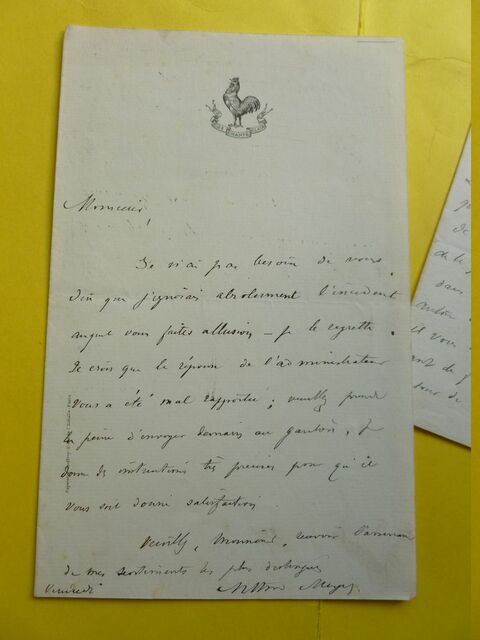 CHANTE CLAIR
Monsieur,
Je n'ai pas besoin de vous
dire que j'ignorais absolument l'incident
auquel vous faites allusion – je le regrette.
Je crois que la réponse de l'administrateur
vous a été mal rapportée ; veuillez prendre
la peine d'envoyer demain au gaulois, je
donne des instructions très précises pour qu'il
vous soit donné satisfaction
Veuillez, Monsieur, recevoir l'assurance
de mes sentiments les plus distingués
Vendredi Arthur Meyer